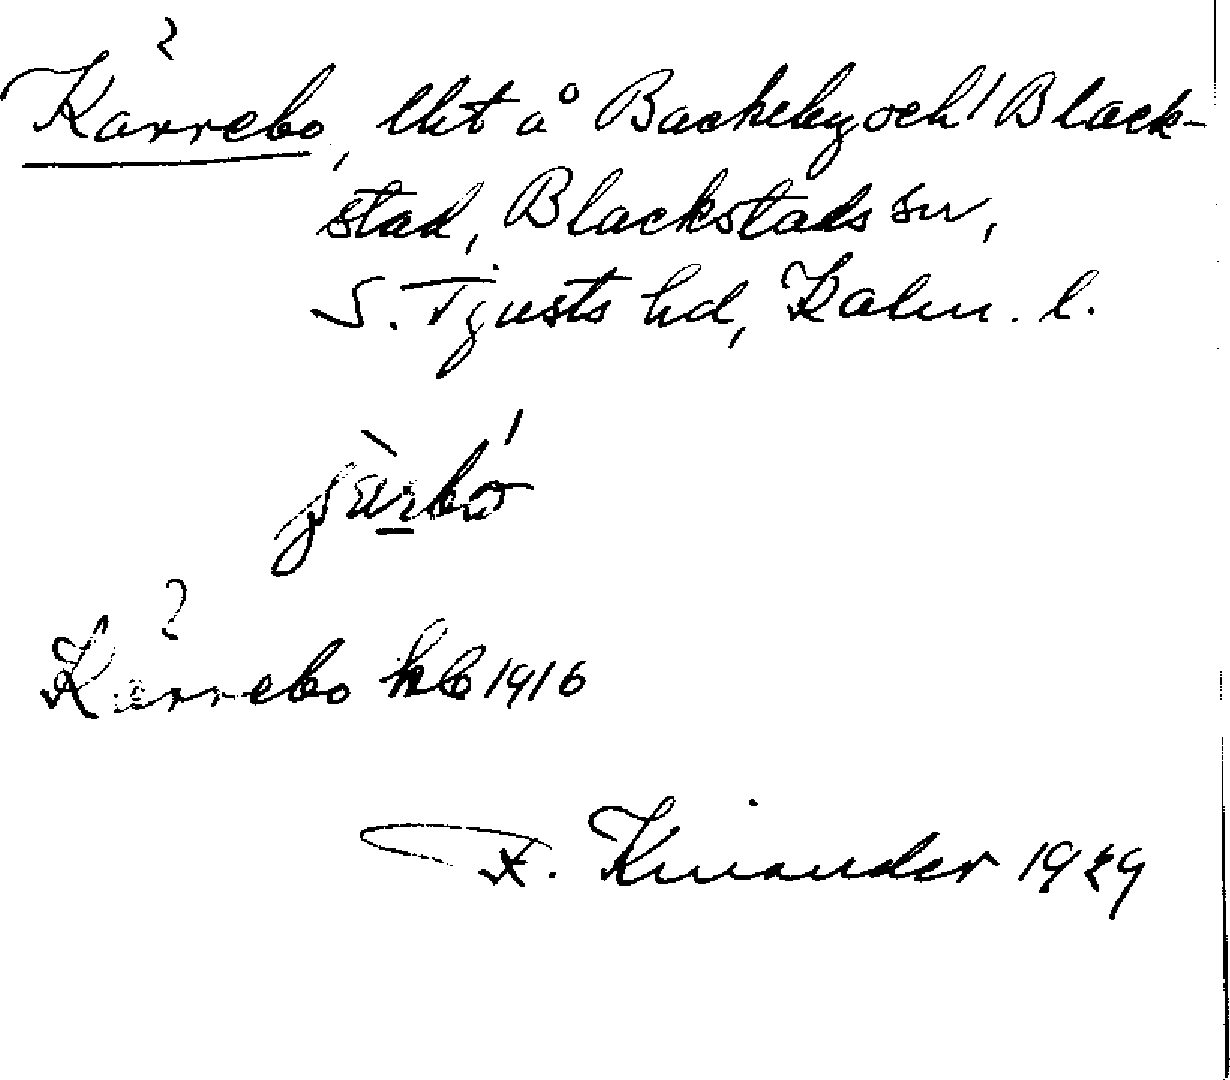 ?
Kärrebo, lht å Backeby och Black-
stad, Blackstads sn,
S. Tjusts hd, Kalm. l.
?
Kärrebo kb 1916
F. Kinander 1929